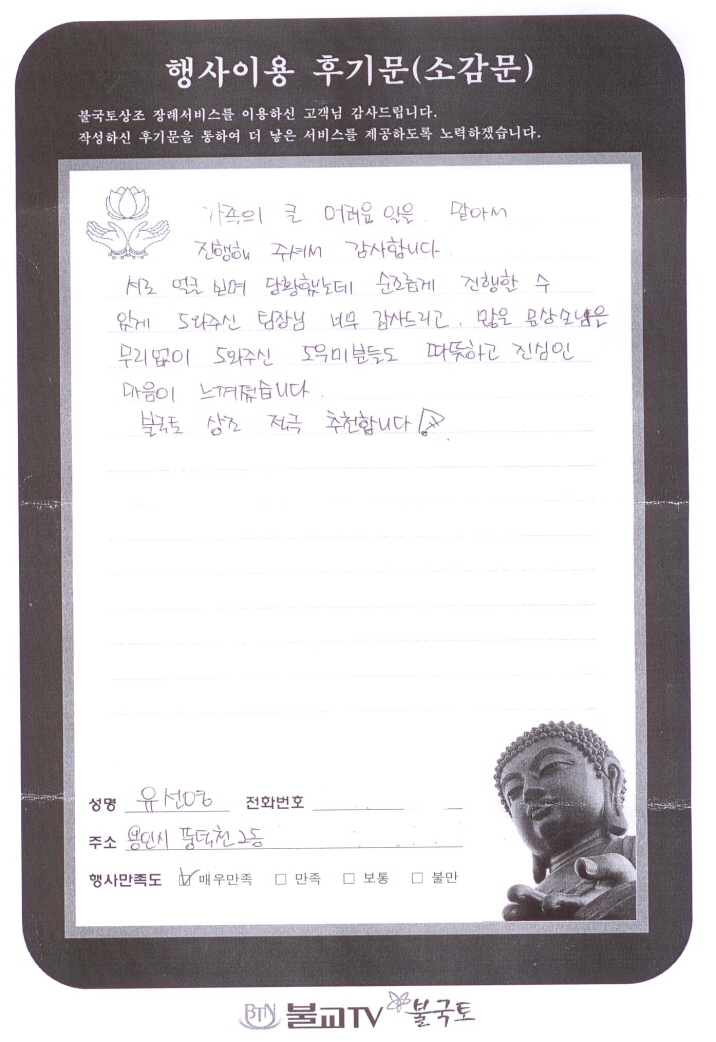 행사이용 후기문(소감문)
불국토상조 장례서비스를 이용하신 고객님 감사드립니다.
작성하신 후기문을 통하여 더 낳은 서비스를 제공하도록 노력하겠습니다.
가족의 큰 어려운 일을 맡아서
진행해 주셔서 감사합니다
서로 얼굴 보며 당황했는데 순조롭게 진행할 수
있게 도와주신 팀장님 너무 감사드리고, 많은 문상손님은
무리없이 도와주신 도우미분들도 따뜻하고 진심인
마음이 느껴졌습니다.
불국토 상조 적극 추천합니다
성명 유선영 전화번호
주소 용인시 풍덕천2동
행사만족도 매우만족 만족 보통 불만
BTN 불교TV 불국토